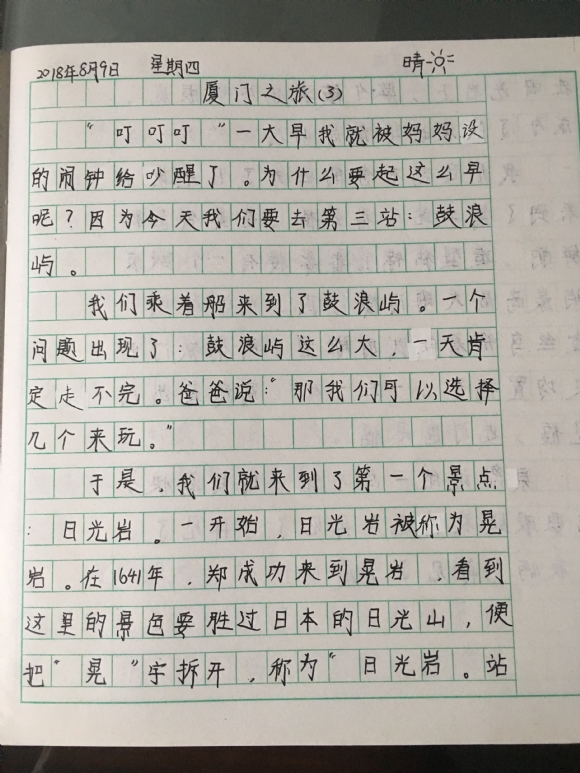 2018年8月9日 星期四 晴
厦门之旅(3)
“叮叮叮”一大早我就被妈妈设
的闹钟给吵醒了。为什么要起这么早
呢?因为今天我们要去第三站:鼓浪
屿。
我们乘着船来到了鼓浪屿。一个
问题出现了:鼓浪屿这么大,一天肯
定走不完。爸爸说:“那我们可以选择
几个来玩。”
于是,我们就来到了第一个景点
:日光岩。一开始,日光岩被称为晃
岩。在1641年,郑成功来到晃岩,看到
这里的景色要胜过日本的日光山,便
把“晃”字拆开,称为“日光岩。站